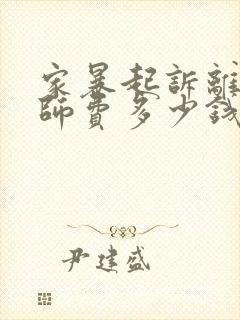 家暴起訴離
師費多少錢
尹建盛